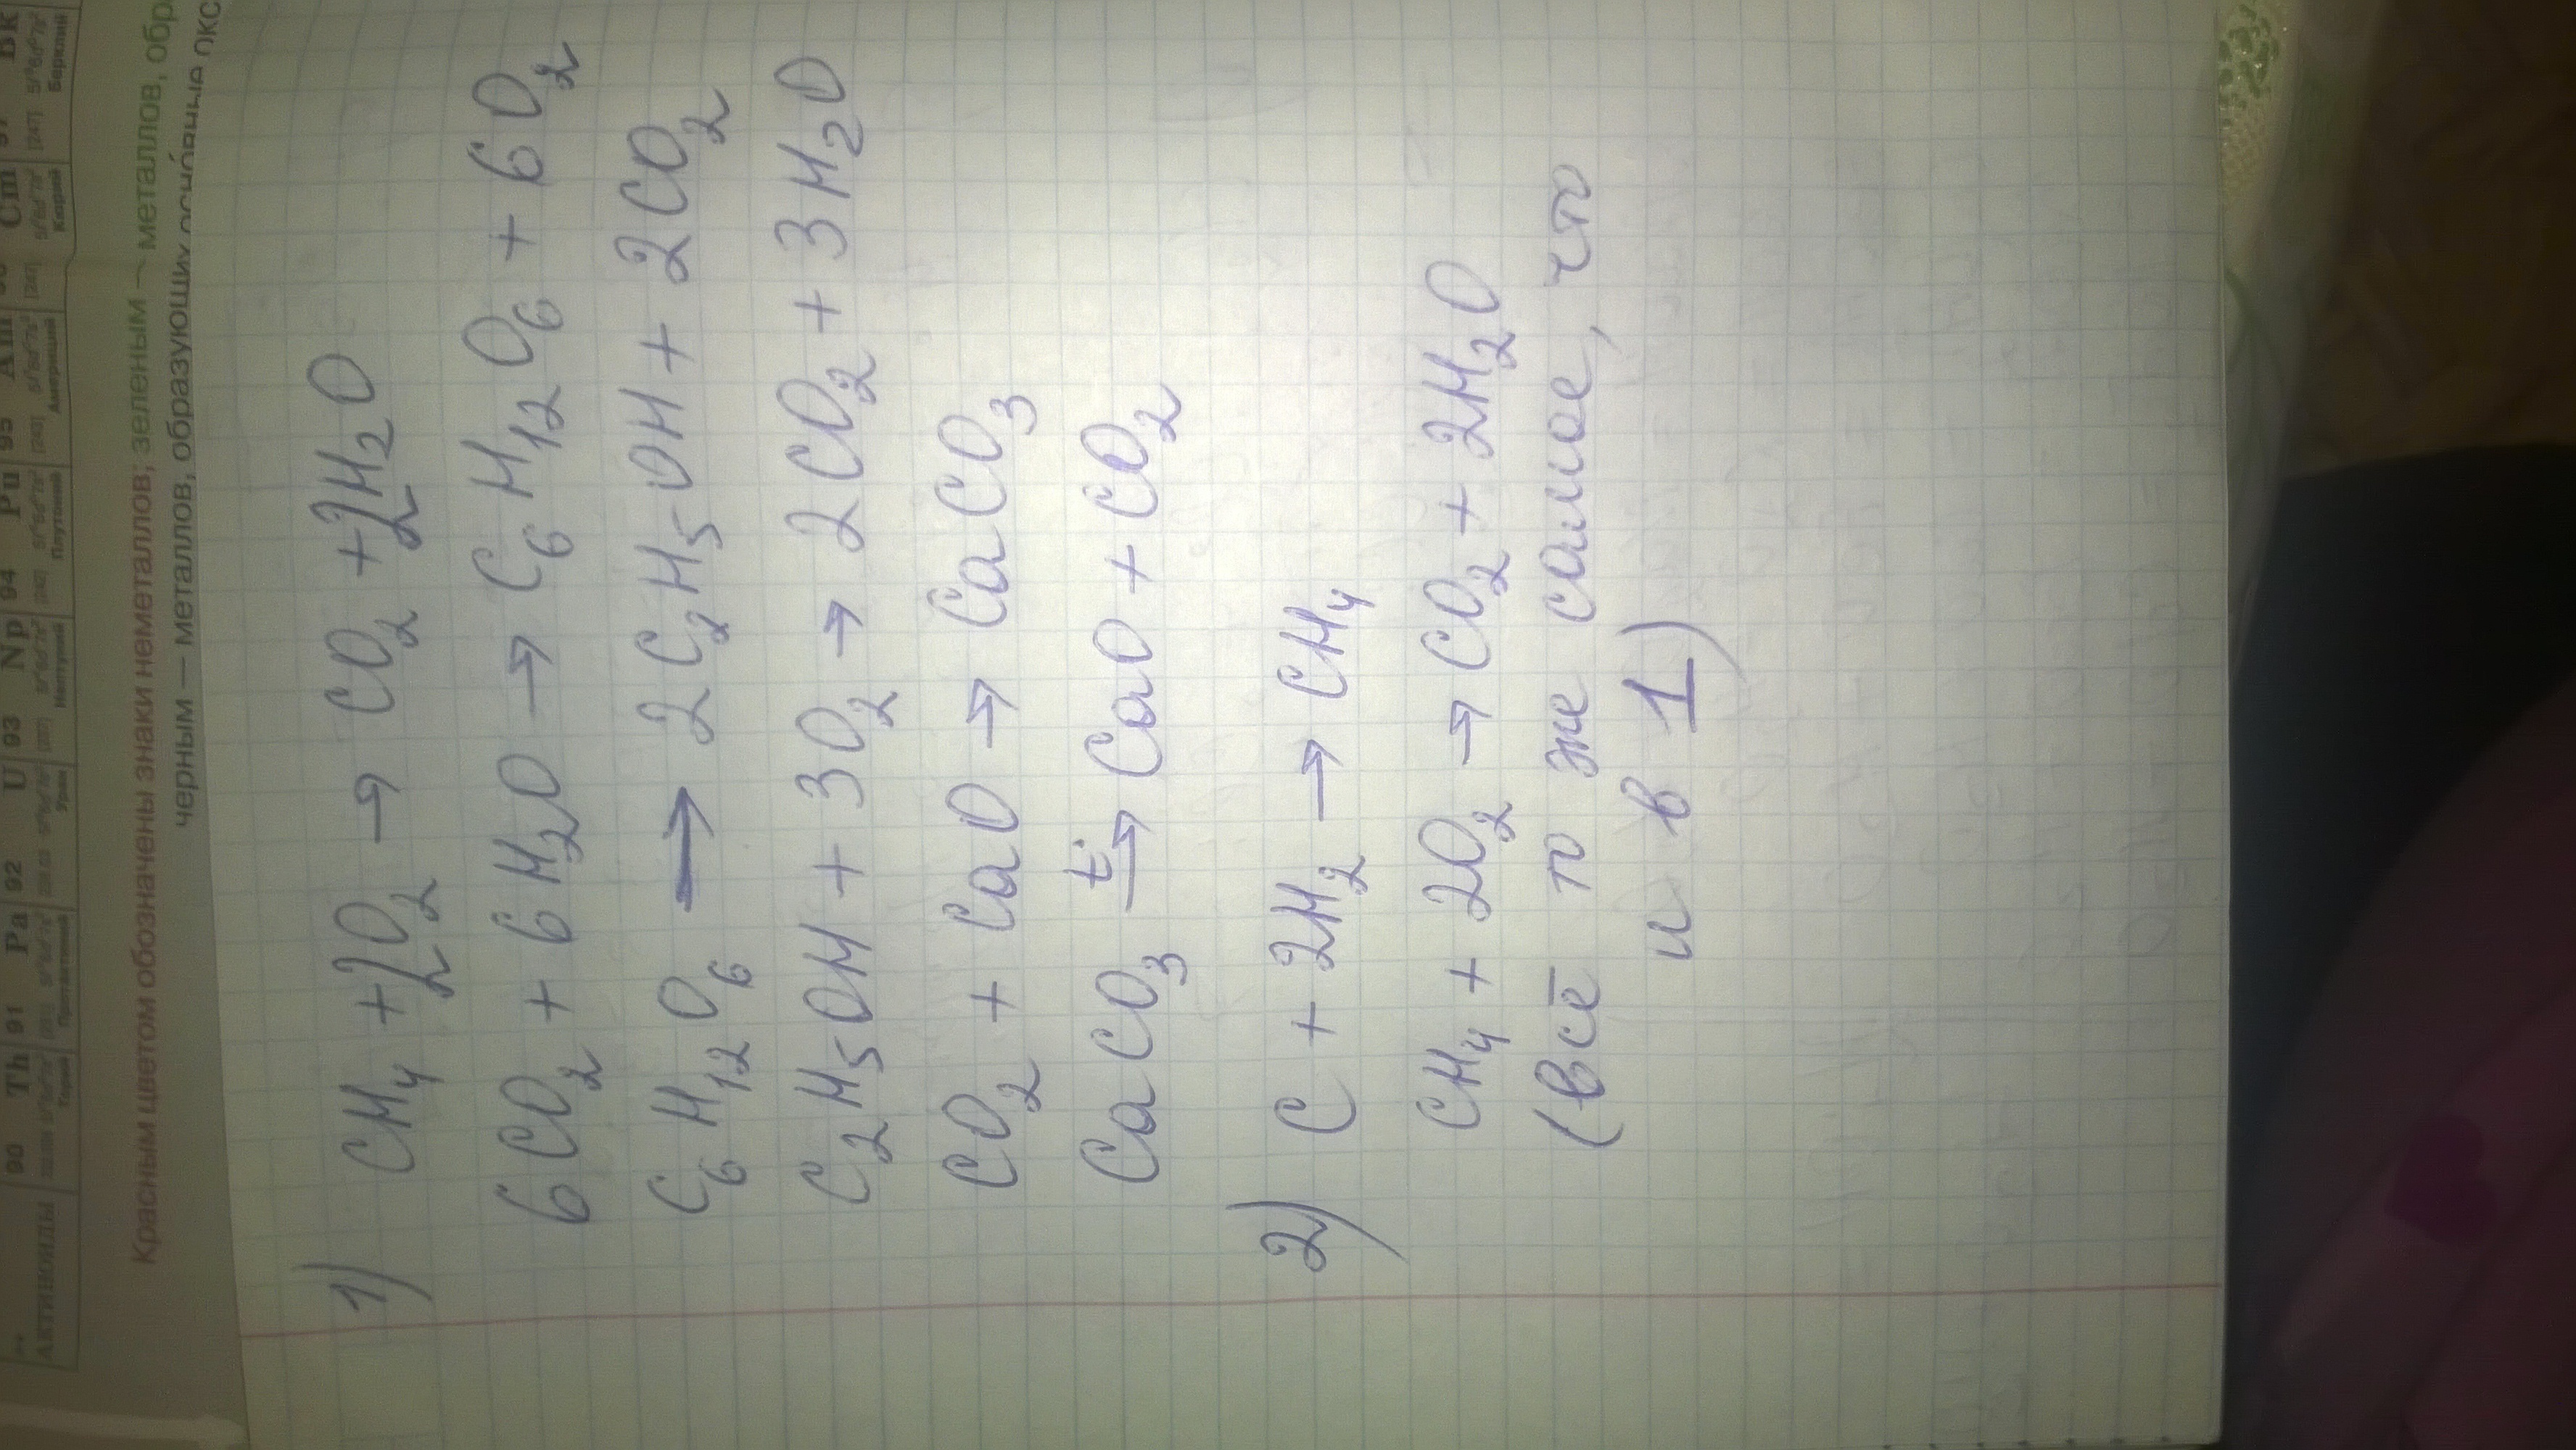 90 Th 91 Pa 92 U 93 Np 94 Pu 95 Am Cm Bk
АКТИНОИДЫ Торий Протактиний Уран Нептуний Плутоний Америций Кюрий Берклий
Красным цветом обозначены знаки неметаллов; зеленым — металлов, обр
черным — металлов, образующих основные окс
1) CH₄ + 2O₂ → CO₂ + 2H₂O
6CO₂ + 6H₂O → C₆H₁₂O₆ + 6O₂
C₆H₁₂O₆ → 2C₂H₅OH + 2CO₂
C₂H₅OH + 3O₂ → 2CO₂ + 3H₂O
CO₂ + CaO → CaCO₃
CaCO₃ t° → CaO + CO₂
2) C + 2H₂ → CH₄
CH₄ + 2O₂ → CO₂ + 2H₂O
(всё то же самое, что
и в 1)